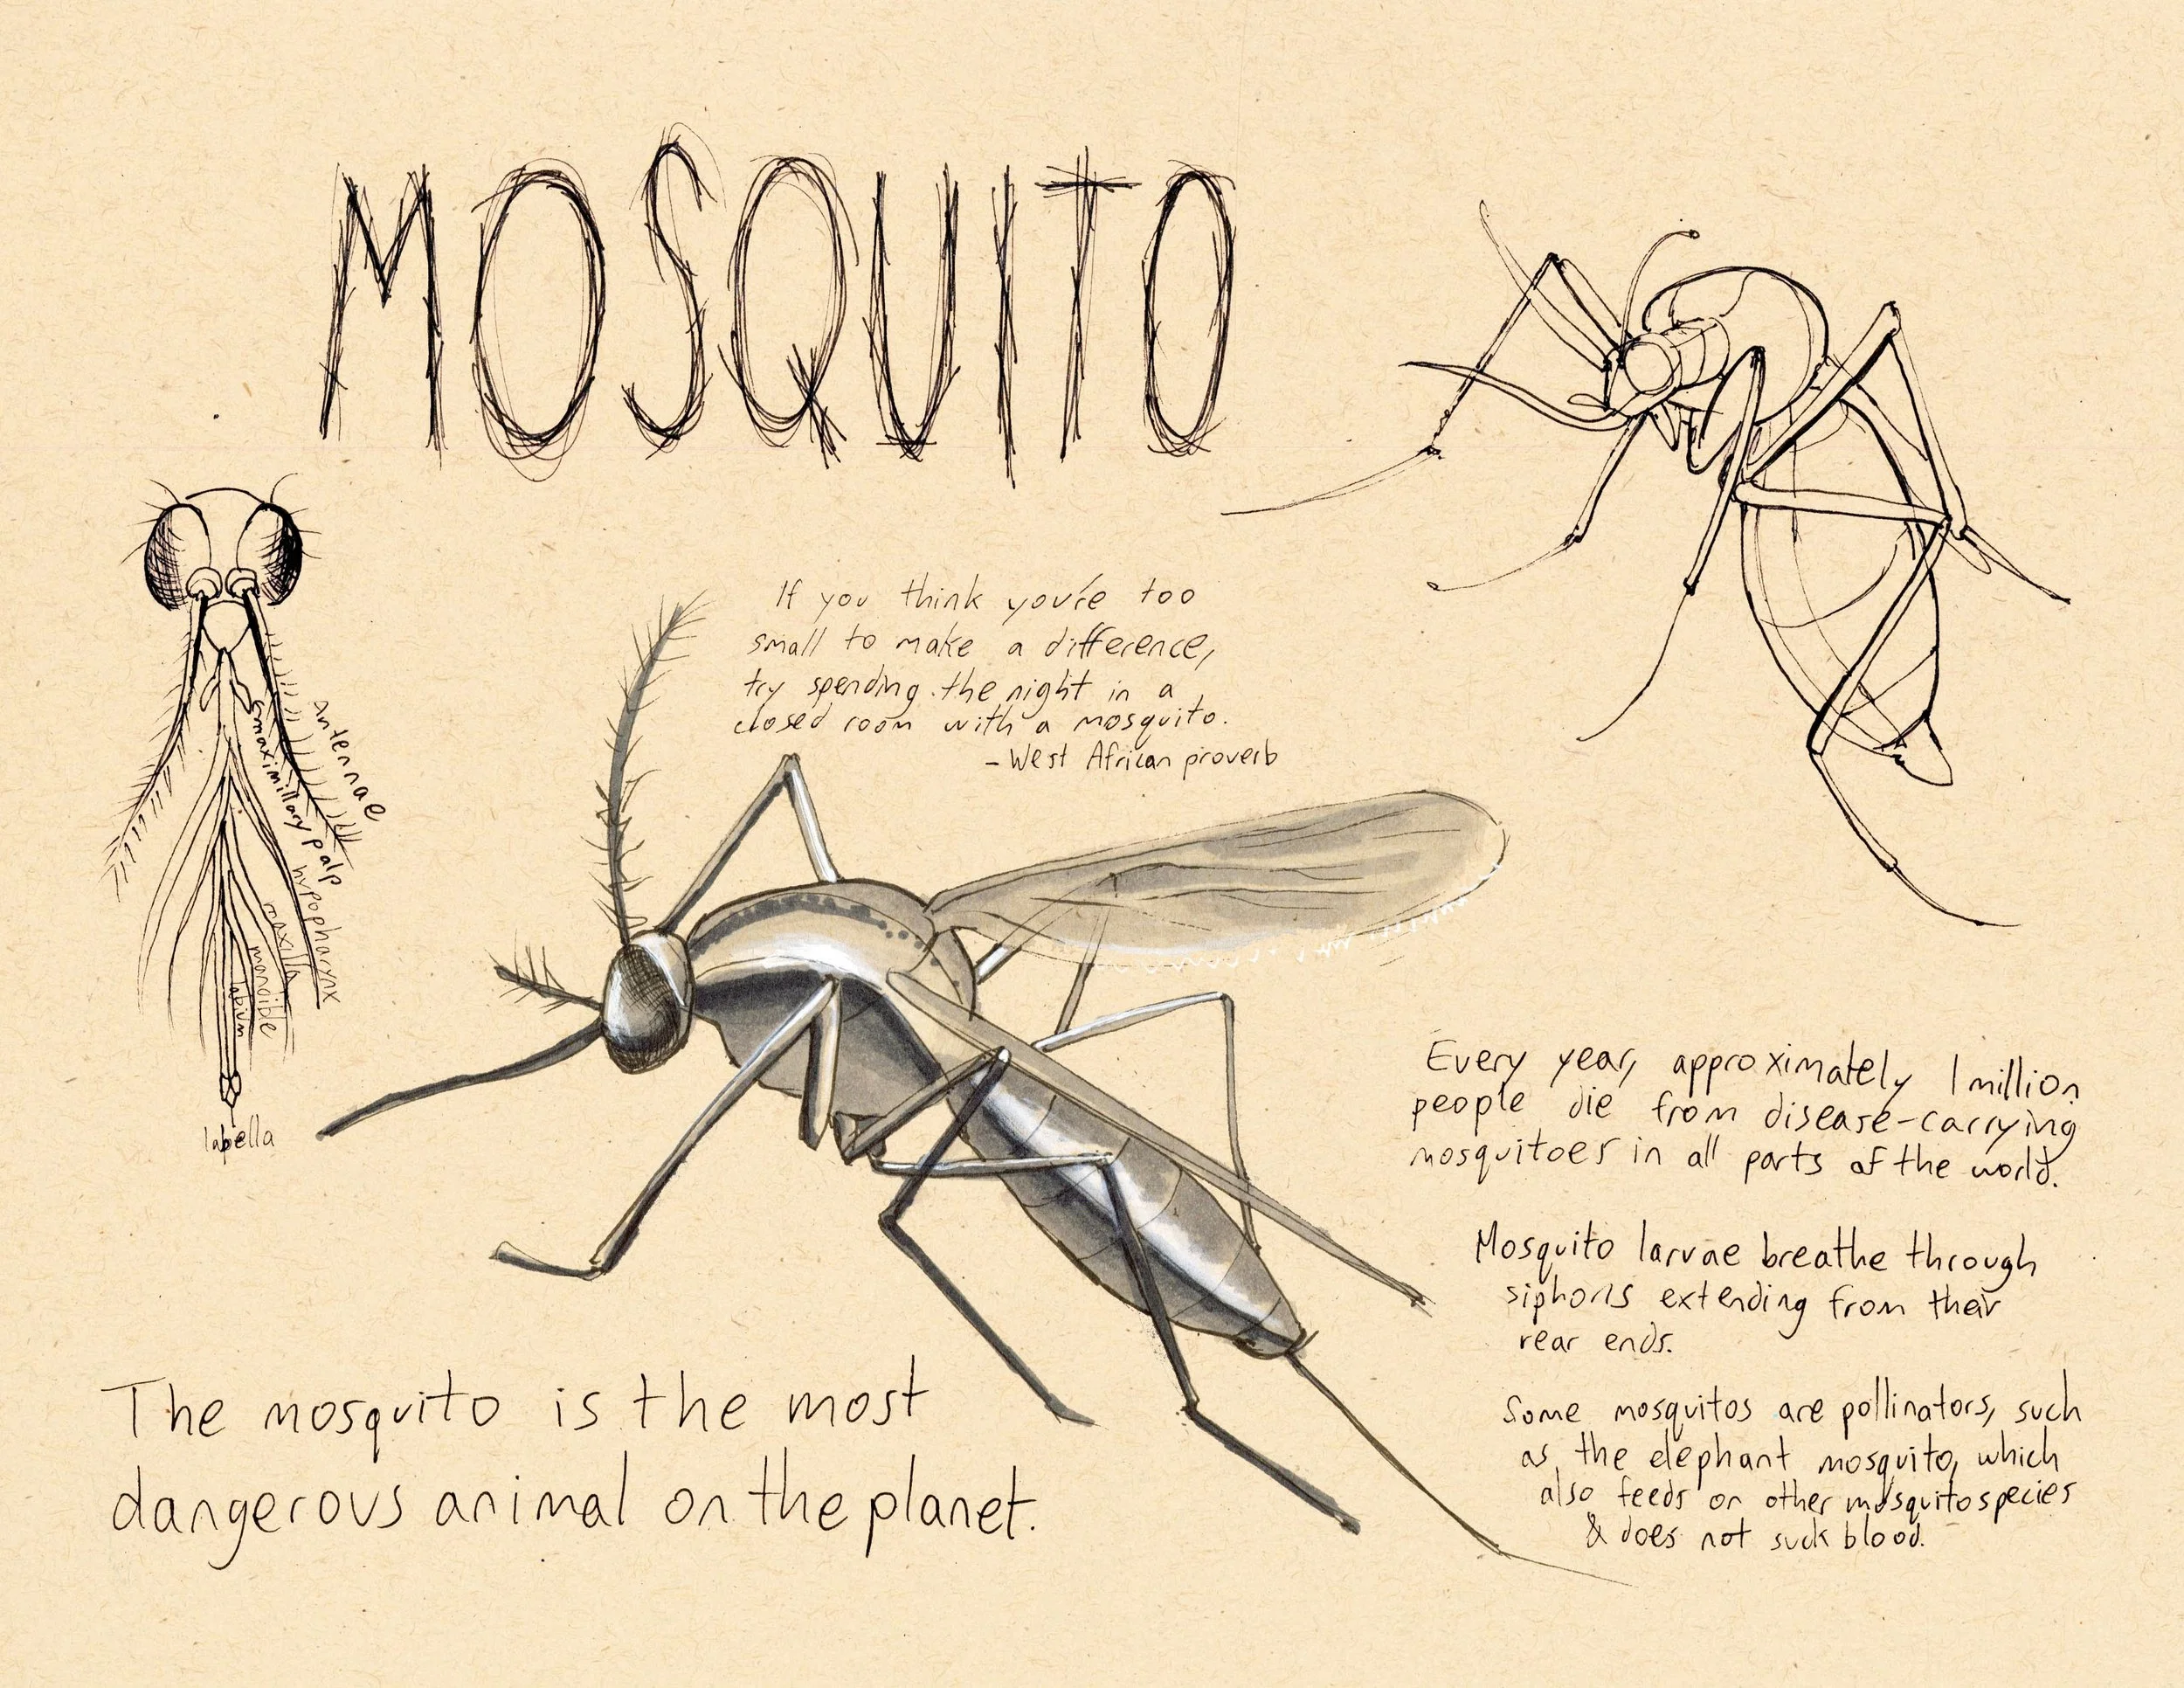 MOSQUITO
If you think you're too
small to make a difference,
try spending the night in a
closed room with a mosquito.
- West African proverb
antennae
maximillary palp
hypopharynx
maxilla
mandible
labium
labella
Every year, approximately 1 million
people die from disease-carrying
mosquitoes in all parts of the world.
Mosquito larvae breathe through
siphons extending from their
rear ends.
Some mosquitos are pollinators, such
as the elephant mosquito, which
also feeds on other mosquito species
& does not suck blood.
The mosquito is the most
dangerous animal on the planet.